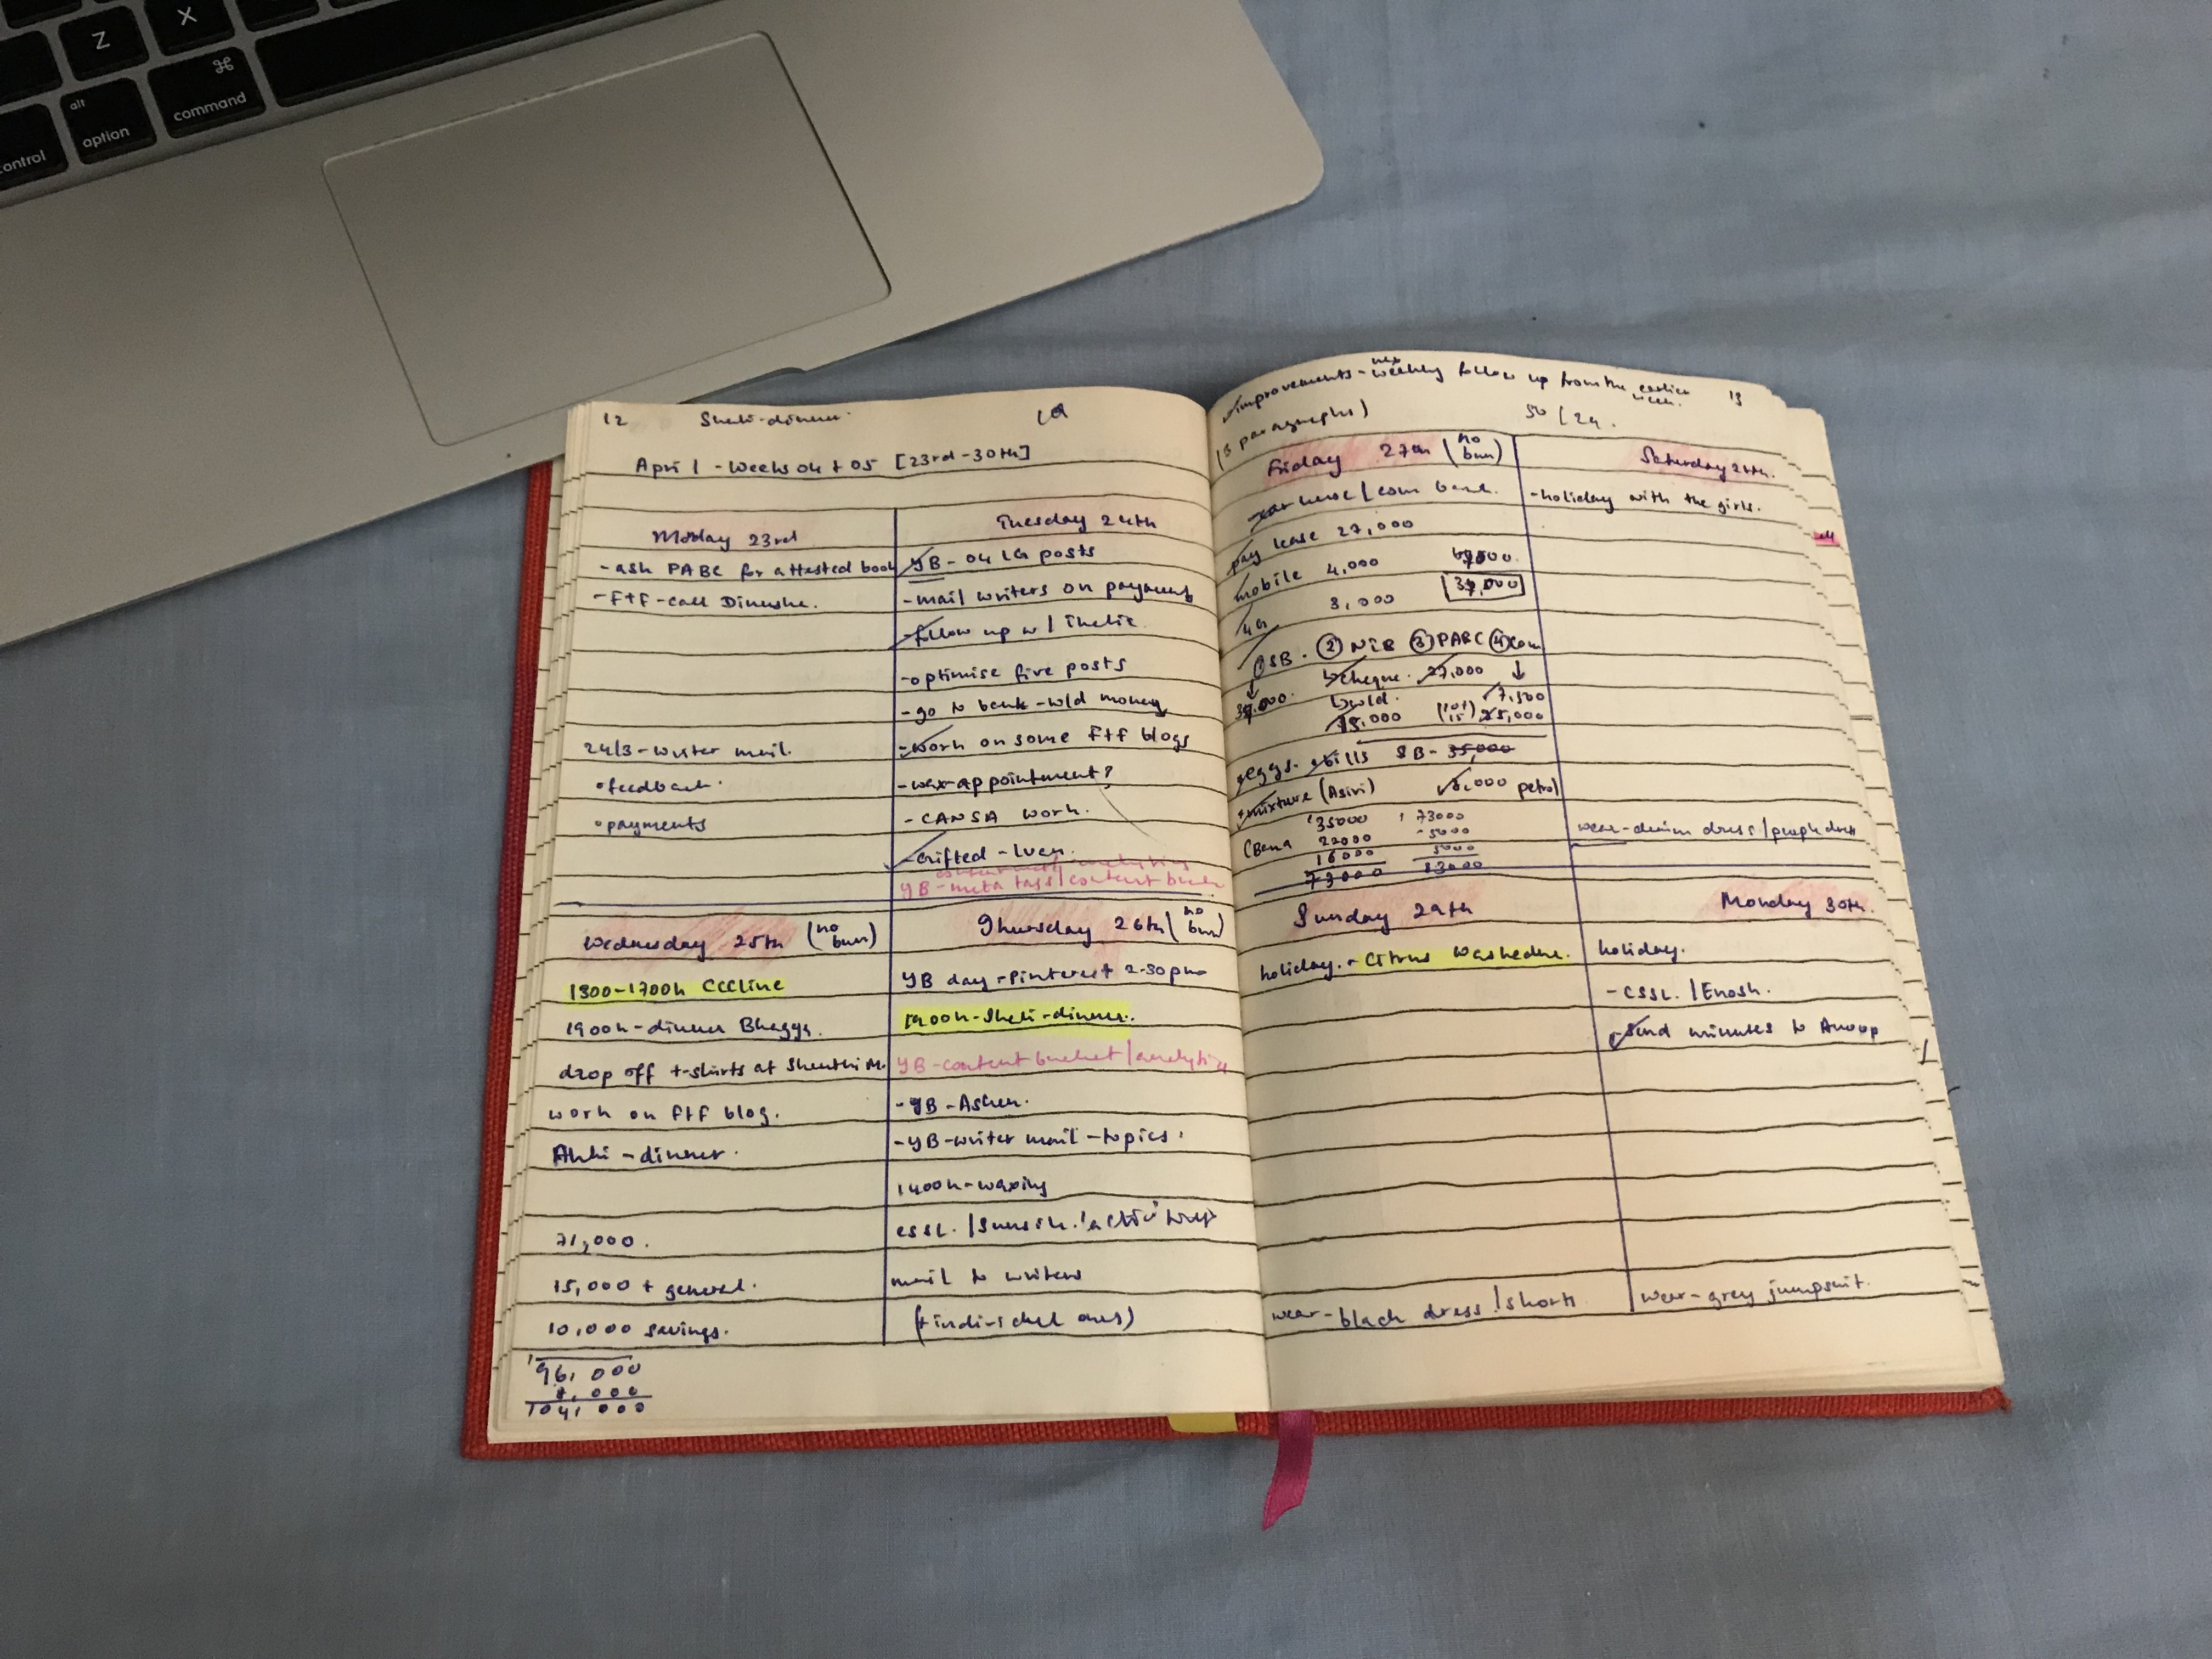 Z
X
alt
⌘
control
option
command
12
Sheli-dinner
April - Weeks 04 + 05 [23rd-30th]
Monday 23rd
- ask PABC for attested book
- F+F-call Dinushe.
24/3-writer mail.
• feedback.
• payments
Tuesday 24th
YB - 04 IG posts
- mail writers on payment
- follow up w/
- optimise five posts
- go to bank - w/d money
- work on some F+F blogs
- wax-appointment?
- CANSA work.
YB - meta tags/content
Wednesday 25th (no bun)
1300-1700h CCCline
1900h-dinner Bhaggs.
drop off t-shirts at Shenthi M.
work on F+F blog.
Akhi - dinner.
71,000.
15,000 + general.
10,000 savings.
96,000
8,000
104,000
Thursday 26th (no bun)
YB day - Pinterest 2-30pm
1900h-Sheli-dinner.
YB-content bucket/analytics
- YB - Asher.
- YB-writer mail - topics.
1400h-waxing
mail to writers
improvements - weekly follow up from the earlier week.
13
(3 paragraphs)
Friday 27th (no bun)
pay lease 27,000
mobile 4,000
3,000
① SB. ② NTB ③ PABC ④ Com
cheque. 27,000
w/d.
7,500
eggs. bills SB - 35,000
mixture (Asiri)
petrol
35000
22000
16000
73000
73000
Saturday 28th.
- holiday with the girls.
Sunday 29th
holiday. - Citrus Waskaduwa.
wear-black dress/shorts
Monday 30th.
holiday.
- CSSL./Enosh.
- send minutes to Anoop
wear-grey jumpsuit.